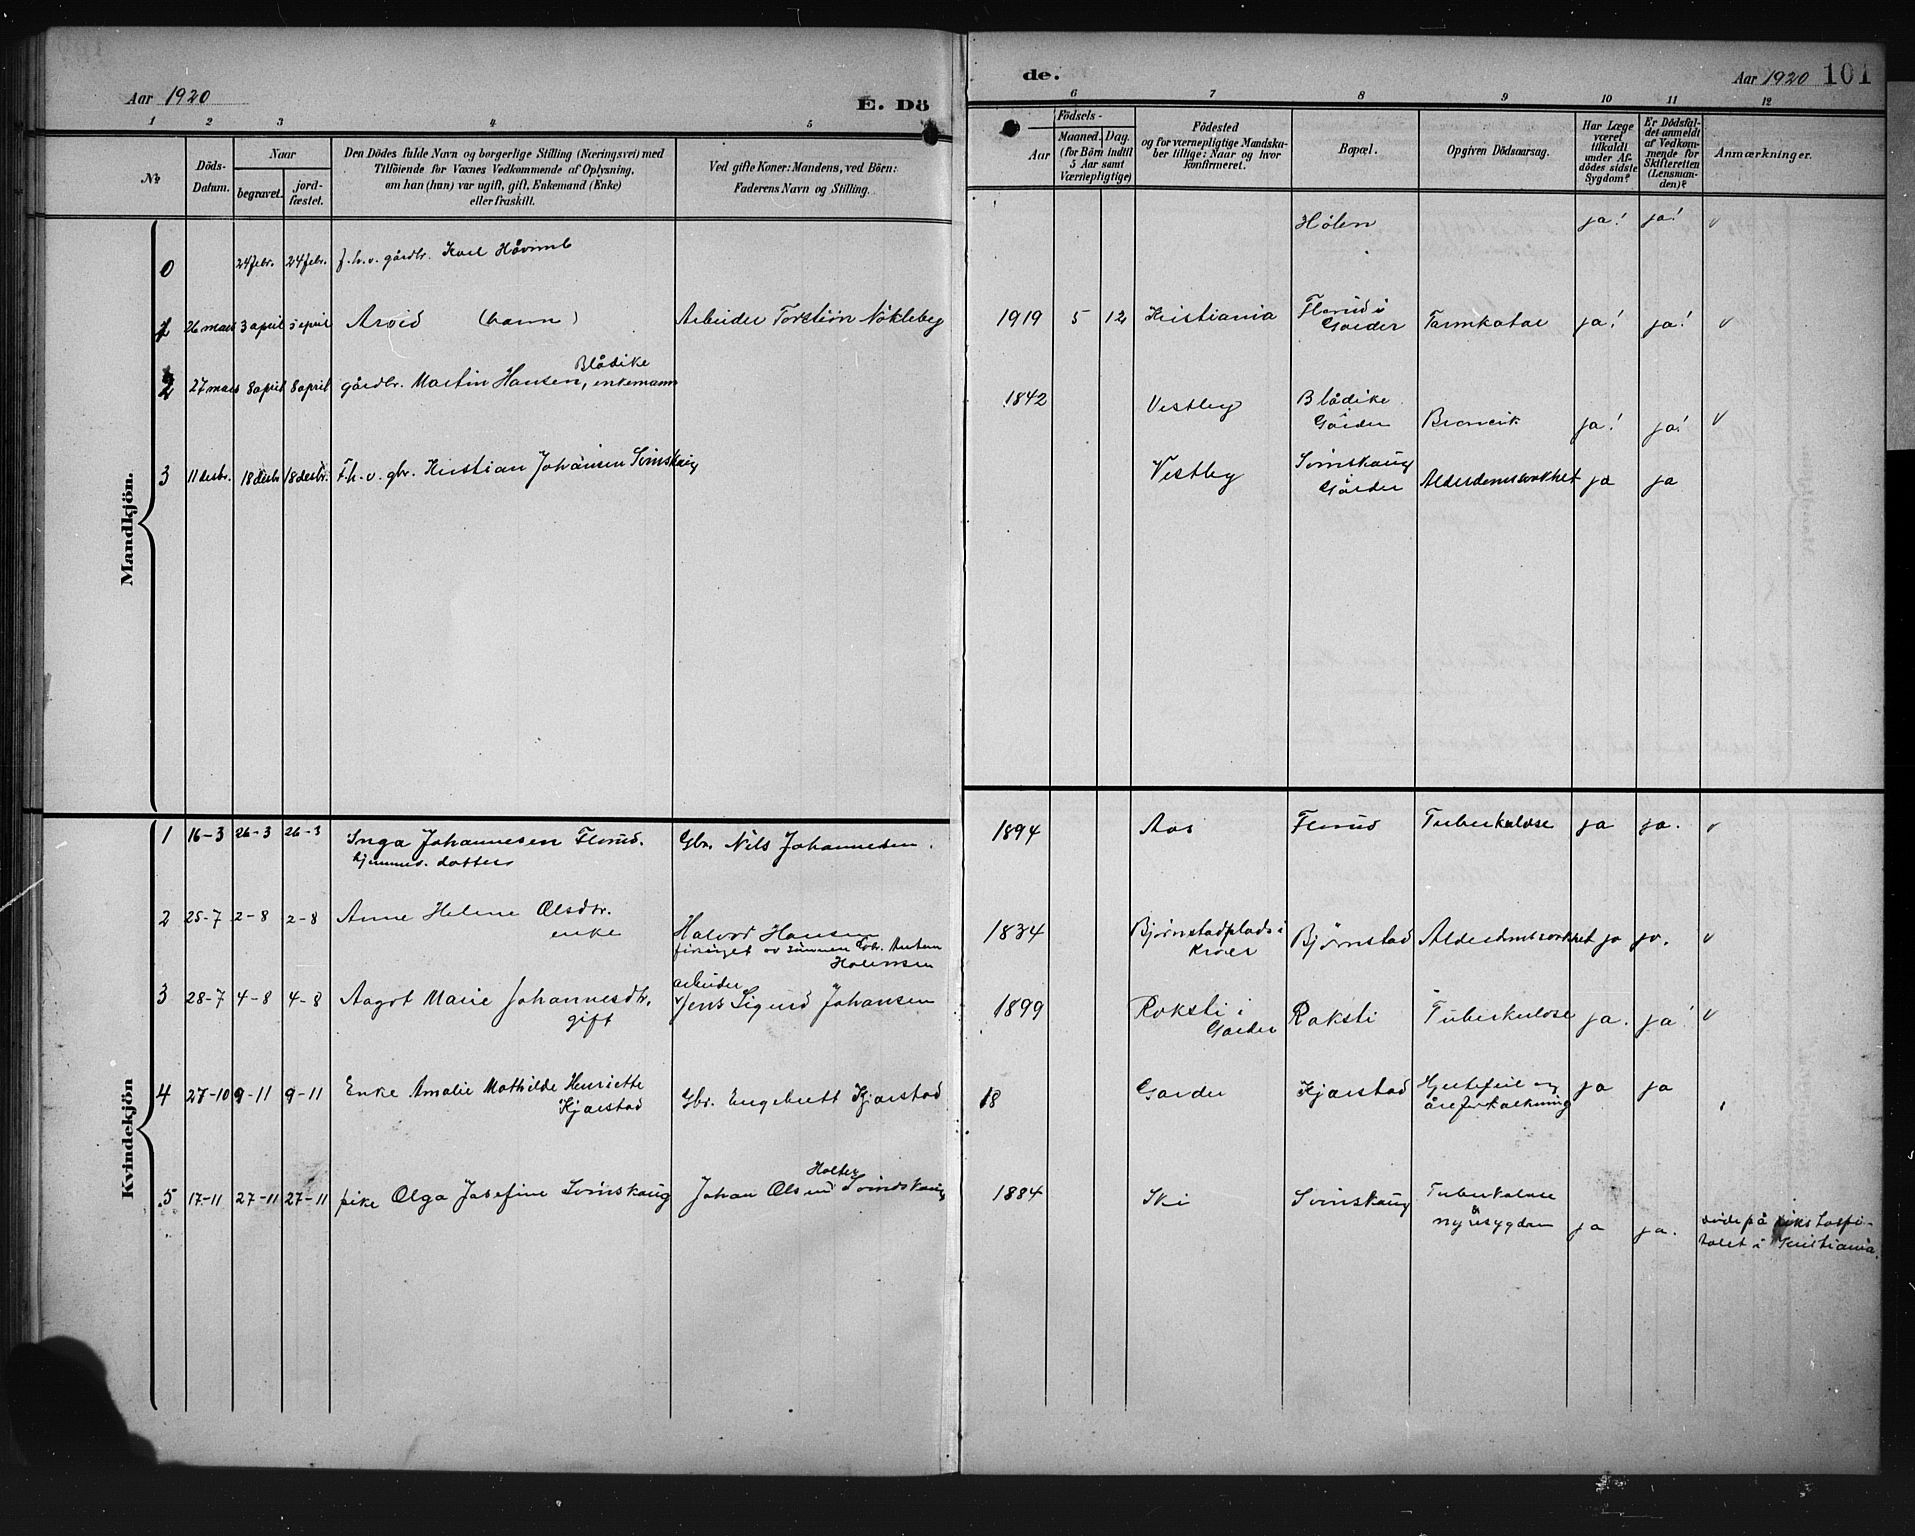 Aar 1920
E. Dö
de.
Aar 1920 101
1 2 3 4 5
6 7 8 9 10 11 12
№
Döds-
Datum.
Naar
begravet.
jord-
fæstet.
Den Dödes fulde Navn og borgerlige Stilling (Næringsvei) med
Tilföiende for Voxnes Vedkommende af Oplysning,
om han (hun) var ugift, gift, Enkemand (Enke)
eller fraskilt.
Ved gifte Koner: Mandens, ved Börn:
Faderens Navn og Stilling.
Födsels-
Aar
Maaned. Dag.
(for Börn indtil
5 Aar samt
Værnepligtige)
Födested
og for værnepligtige Mandska-
ber tillige: Naar og hvor
konfirmeret.
Bopæl.
Opgiven Dödsaarsag.
Har Læge
været
tilkaldt
under Af-
dödes sidste
Sygdom?
Er Dödsfal-
det anmeldt
af Vedkom-
mende for
Skifteretten
(Lensman-
den)?
Anmærkninger.
Mandkjön.
0 24 febr. 24 febr. f.h.v. gårdbr. Karl Håvimb Hølen ja! ja! v
1 26 mars 3 april 3 april Arvid (barn) Arbeider Torstein Nökleby 1919 5 12 Kristiania Florud i
Garder Tarmkatar ja! ja! v
Blådike
2 27 mars 8 april 8 april gårdbr. Martin Hansen, enkemann 1842 Vestby Blådike
i
Garder Broncit ja! ja! v
3 11 desbr. 18 desbr. 18 desbr. F.h.v. gbr. Kristian Johansen Svinskaug Vestby Svinskaug
Gårder Alderdomssvakhet ja ja
Kvindekjön
1 16-3 26-3 26-3 Inga Johannesen Florud. Gbr. Nils Johannesen. 1894 Aas Florud Tuberkulose ja ja. v
hjemmev. datter
2 25-7 2-8 2-8 Anne Helene Olsdtr.
enke Halvor Hansen
forsörget av sönnen Gbr. Anton
Halvorsen 1834 Bjørnstadplads i
Kroer Bjørnstad Alderdomssvakhet ja ja. v
3 28-7 4-8 4-8 Aagot Marie Johannesdtr.
gift arbeider
Jens Sigurd Johansen 1899 Roksti i
Garder Roksti Tuberkulose ja. ja! v
4 27-10 9-11 9-11 Enke Amalie Mathilde Henriette
Kjærstad Gbr. Engebrett Kjærstad 18 Garder Kjærstad Hjertefeil og
åreforkalkning ja ja
Holter
5 17-11 27-11 27-11 pike Olga Josefine Svinskaug Johan Olsen Svindskaug 1884 Ski Svinskaug Tuberkulose
&
nyresygdom ja ja. døde på rikshospi-
talet i Kristiania.